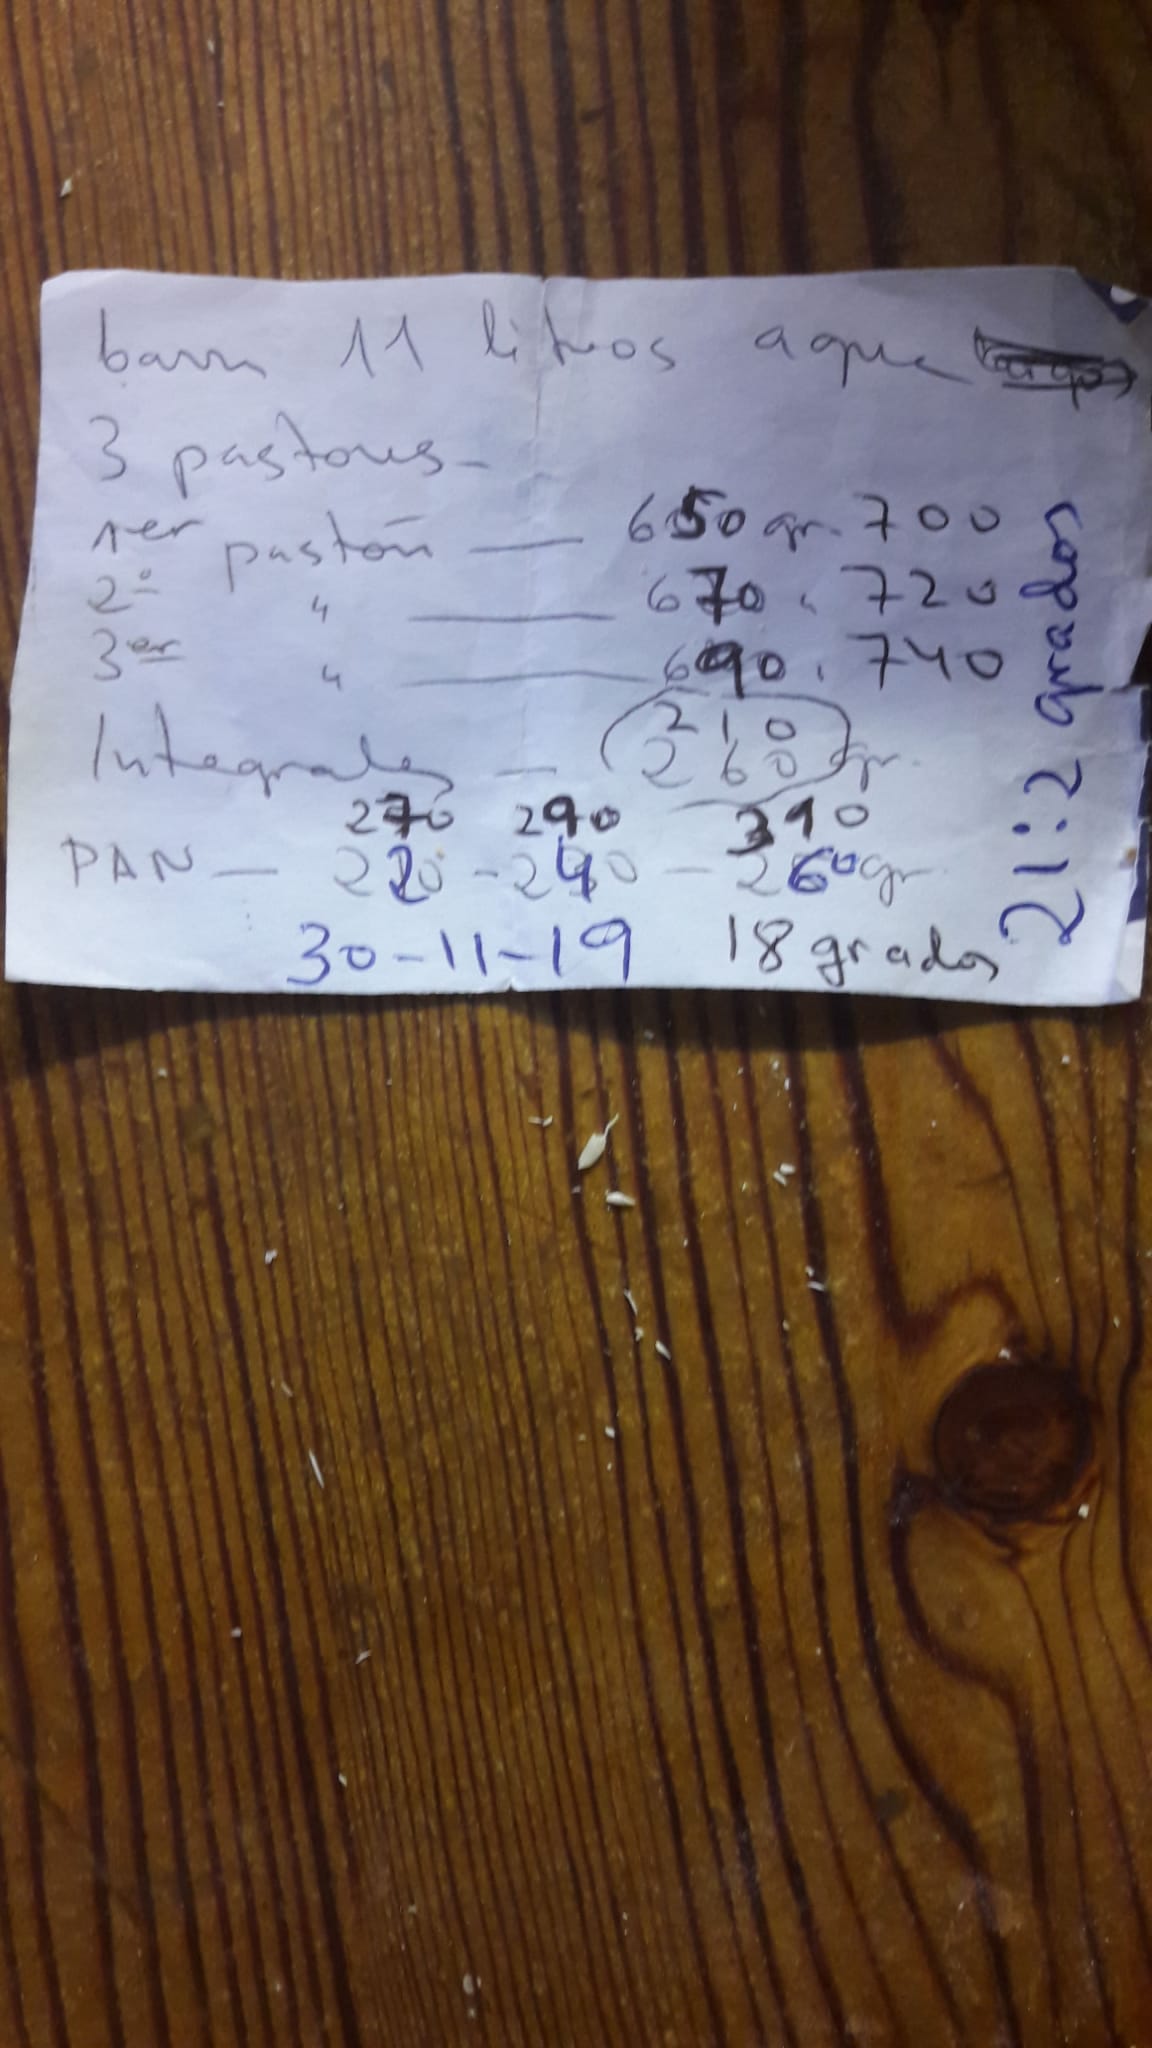 barra 11 litros agua
3 pastones-
1er pastón — 650 gr. 700
2º " — 670 " 720
3er " — 690 " 740
Integrales — 210
260 gr.
270 290 310
PAN — 220 - 240 - 260 gr
30-11-19 18 grados
21:2 grados